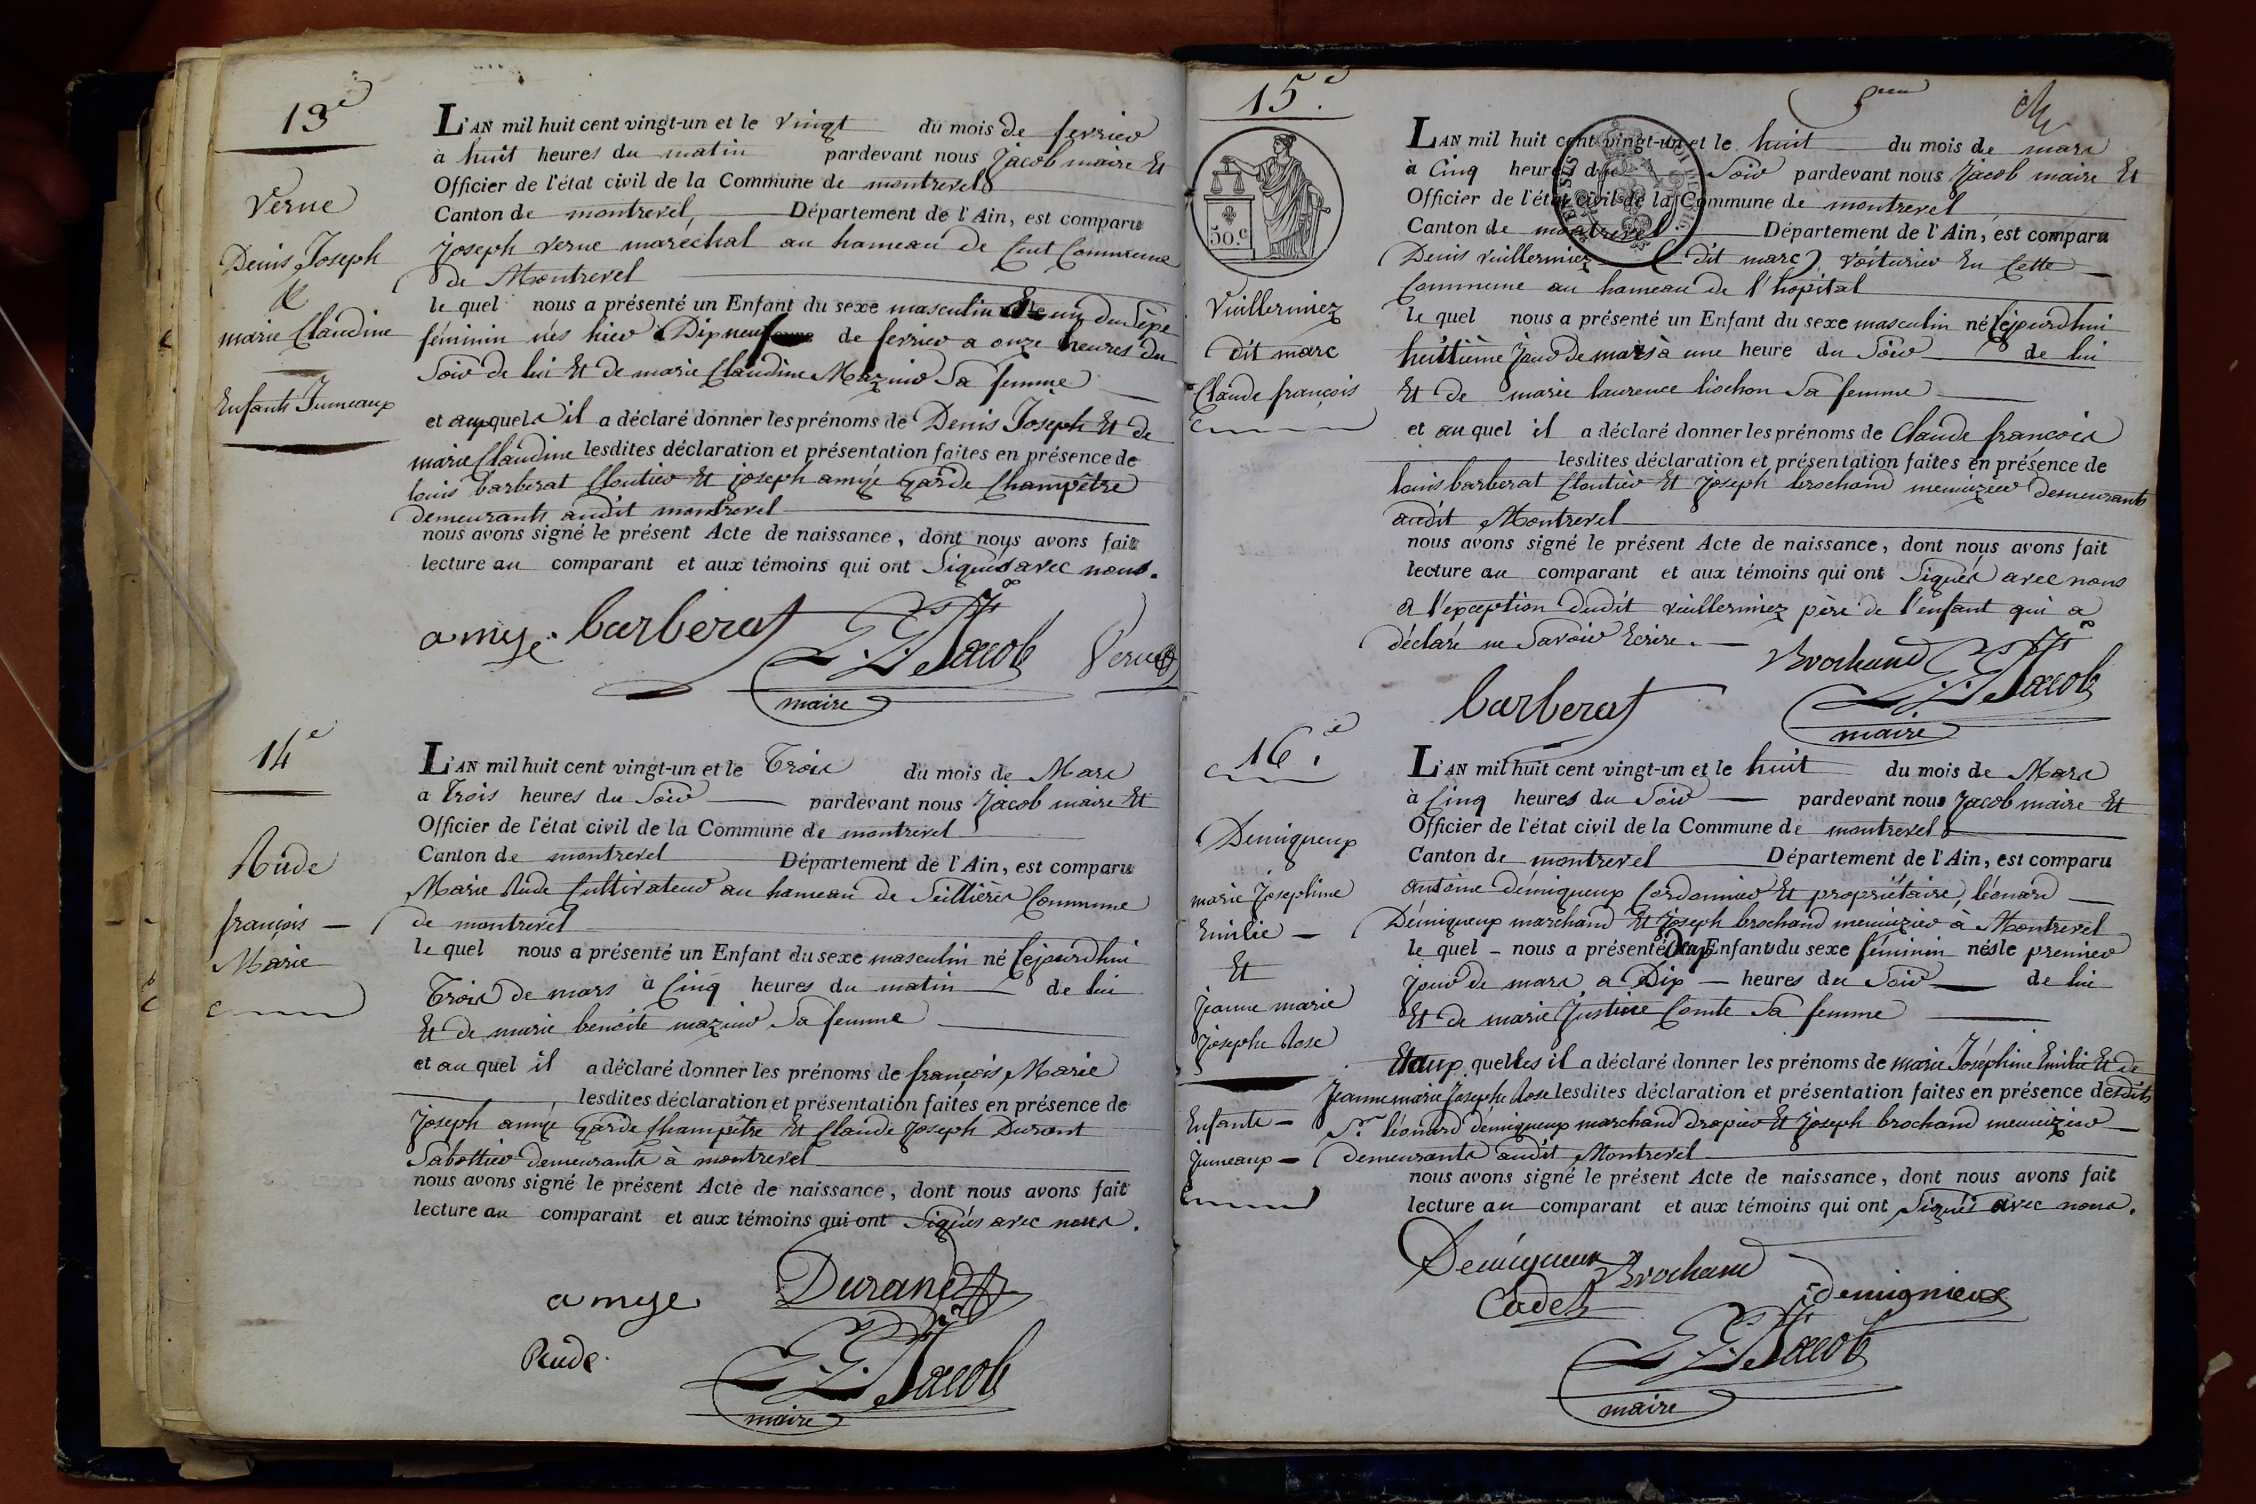 13e
Verne
Denis Joseph
&
marie Claudine
Enfants Jumeaux
L'AN mil huit cent vingt-un et le vingt du mois de fevrier
à huit heures du matin pardevant nous Jacob maire Et
Officier de l'état civil de la Commune de montrevel
Canton de montrevel, Département de l'Ain, est comparu
joseph verne maréchal au hameau de Cuet Commune
de Montrevel
le quel nous a présenté un Enfant du sexe masculin Et un du Sexe
féminin nés hier Dix neuf de fevrier a onze heures du
Soir de lui Et de marie Claudine Mazuir Sa femme
et auxquels il a déclaré donner les prénoms de Denis Joseph Et de
marie Claudine lesdites déclaration et présentation faites en présence de
louis barberat Cloutier Et joseph amyé garde Champêtre
demeurants audit montrevel
nous avons signé le présent Acte de naissance, dont nous avons fait
lecture au comparant et aux témoins qui ont Signés avec nous.
amyé. barberat Jacob Verne
maire
14e
Rude
françois
Marie
L'AN mil huit cent vingt-un et le Trois du mois de Mars
à Trois heures du Soir pardevant nous Jacob maire Et
Officier de l'état civil de la Commune de montrevel
Canton de montrevel Département de l'Ain, est comparu
Marie Rude Cultivateur au hameau de Seillières Commune
de montrevel
le quel nous a présenté un Enfant du sexe masculin né Cejourdhui
Trois de mars à Cinq heures du matin de lui
Et de marie benoite mazuir Sa femme
et au quel il a déclaré donner les prénoms de françois Marie
lesdites déclaration et présentation faites en présence de
Joseph amyé garde Champêtre Et Claude Joseph Durant
Sabottier demeurants à montrevel
nous avons signé le présent Acte de naissance, dont nous avons fait
lecture au comparant et aux témoins qui ont Signés avec nous.
amyé Durand
Rude. Jacob
maire
15e.
5me
50.c
Vuillermiez
dit marc
Claude françois
L'AN mil huit cent vingt-un et le huit du mois de mars
à Cinq heures du Soir pardevant nous Jacob maire Et
Officier de l'état civil de la Commune de montrevel
Canton de montrevel Département de l'Ain, est comparu
Denis vuillermiez (dit marc) voiturier En Cette
Commune au hameau de l'hopital
le quel nous a présenté un Enfant du sexe masculin né Cejourdhui
huitième Jour de mars à une heure du Soir de lui
Et de marie laurence liochon Sa femme
et au quel il a déclaré donner les prénoms de Claude françois
lesdites déclaration et présentation faites en présence de
louis barberat Cloutier Et Joseph brochand menuizier demeurants
audit Montrevel
nous avons signé le présent Acte de naissance, dont nous avons fait
lecture au comparant et aux témoins qui ont Signés avec nous
a l'exception dudit vuillermiez père de l'enfant qui a
déclaré ne Savoir Ecrire.
Brochand
barberat Jacob
maire
16e.
Demiqueux
marie Josephine
Emilie
Et
Jeanne marie
Josephe Rose
Enfants
Jumeaux
L'AN mil huit cent vingt-un et le huit du mois de Mars
à Cinq heures du Soir pardevant nous Jacob maire Et
Officier de l'état civil de la Commune de montrevel
Canton de montrevel Département de l'Ain, est comparu
antoine démiqueux Cordonnier Et propriétaire, léonard
Démiqueux marchand Et Joseph brochand menuizier à Montrevel
le quel nous a présenté Deux Enfants du sexe féminin nés le premier
jour de mars a Dix heures du Soir de lui
Et de marie Justine Comte Sa femme
Et aux quelles il a déclaré donner les prénoms de marie Joséphine Emilie Et de
Jeanne marie Josephe Rose lesdites déclaration et présentation faites en présence desdits
Sr. léonard démiqueux marchand drapier Et Joseph brochand menuizier
demeurants audit Montrevel
nous avons signé le présent Acte de naissance, dont nous avons fait
lecture au comparant et aux témoins qui ont Signés avec nous.
Demiqueux Brochand
Cadet demignieux
Jacob
maire